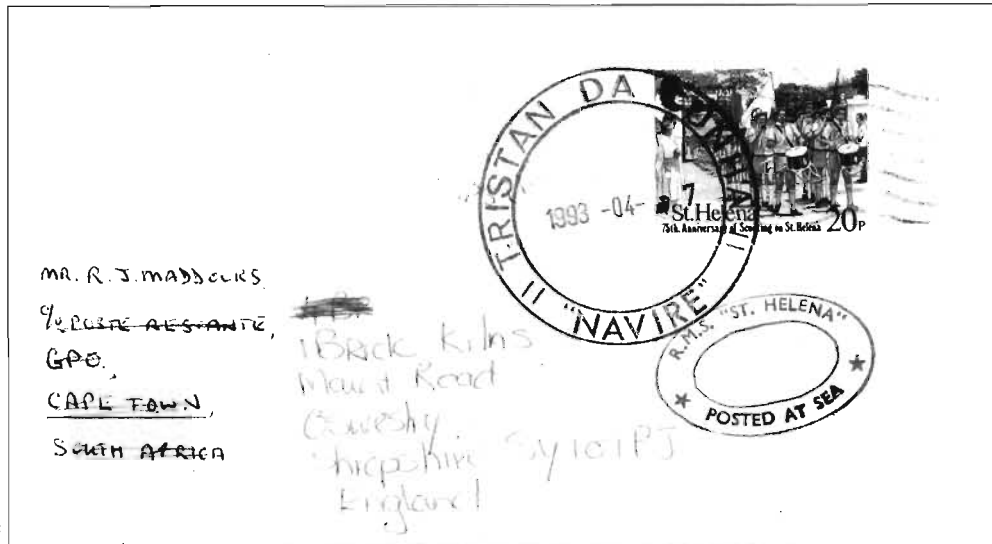 II TRISTAN DA CUNHA II
"NAVIRE"
1993 -04- 7
St. Helena
75th. Anniversary of Scouting on St. Helena 20P
R.M.S. "ST. HELENA"
★ POSTED AT SEA ★
MR. R. J. MADDOCKS
c/o POSTE RESTANTE,
GPO,
CAPE TOWN,
SOUTH AFRICA
1 Brick Kilns
Mount Road
Oweshy
Shropshire SY10 1PJ
England